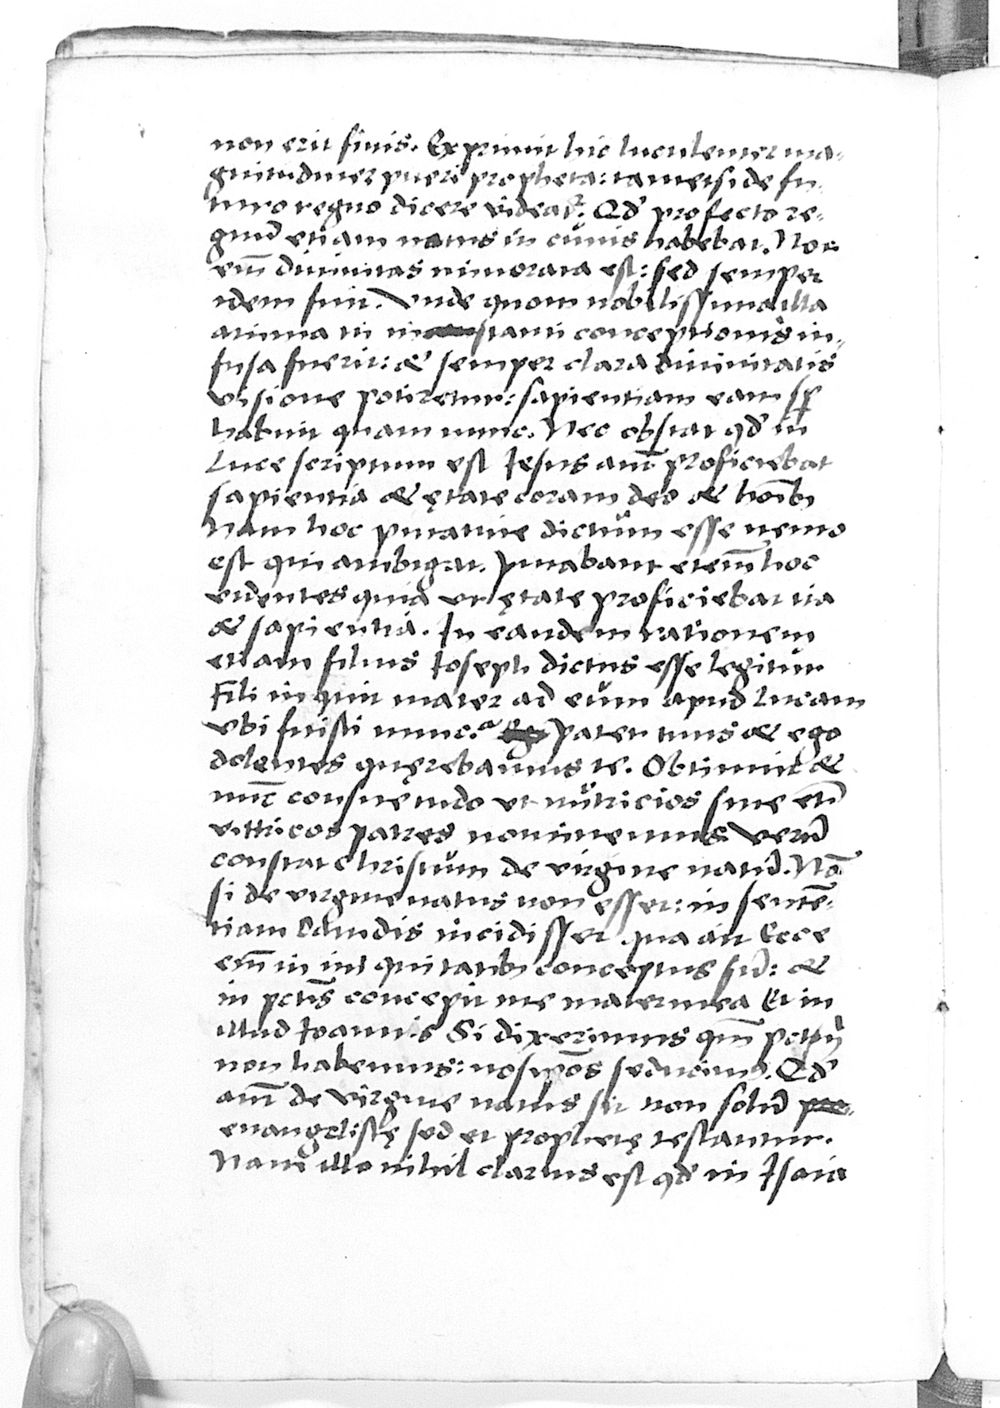 non erit finis. Exprimit hic luculenter ma-
gnitudinem pueri propheta: tametsi de fu
turo regno dicere videat᷑. Qd̓ profecto re-
gnū etiam natus in cunis habebat. Nec
em̄ diuinitas minorata est: sed semper
idem fuit. Vnde quom nobilissima illa
anima in instanti conceptionis in-
fusa fuerit: & semper clara diuinitatis
visione potiretur: sapientiam eam sp̄
habuit quam nunc. Nec obstat qd̓ in
Luce scriptum est Iesus aut̄ proficiebat
sapientia & ętate coram deo & hoīb
Nam hoc putatiue dictum esse nemo
est qui ambigat. Putabant etem̄ hoc
videntes quia vt ętate proficiebat ita
& sapientia. In eandem rationem
etiam filius Ioseph dictus esse legitur
Fili inquit mater ad eum apud Lucam
vbi fuisti nunc? Pater tuus & ego
dolentes quęrebamus te. Obtinuit &
nūc consuetudo vt nutricios siue etiā
vittricos patres nominemus Verū
constat christum de virgine natū. Nā
si de virgine natus non esset: in senten-
tiam Dauidis incidisset qua ait Ecce
em̄ in iniquitatib conceptus sū: &
in pctīs concepit me mater mea Et in
illud Ioannis Si dixerimus qm̄ pctm̄
non habemus: nosipōs seducim᷒. Qd̓
aut̄ de virgine natus sit non solū
euangelistę sed et prophetę testantur.
Nam illo nihil clarius est qd̓ in Isaia